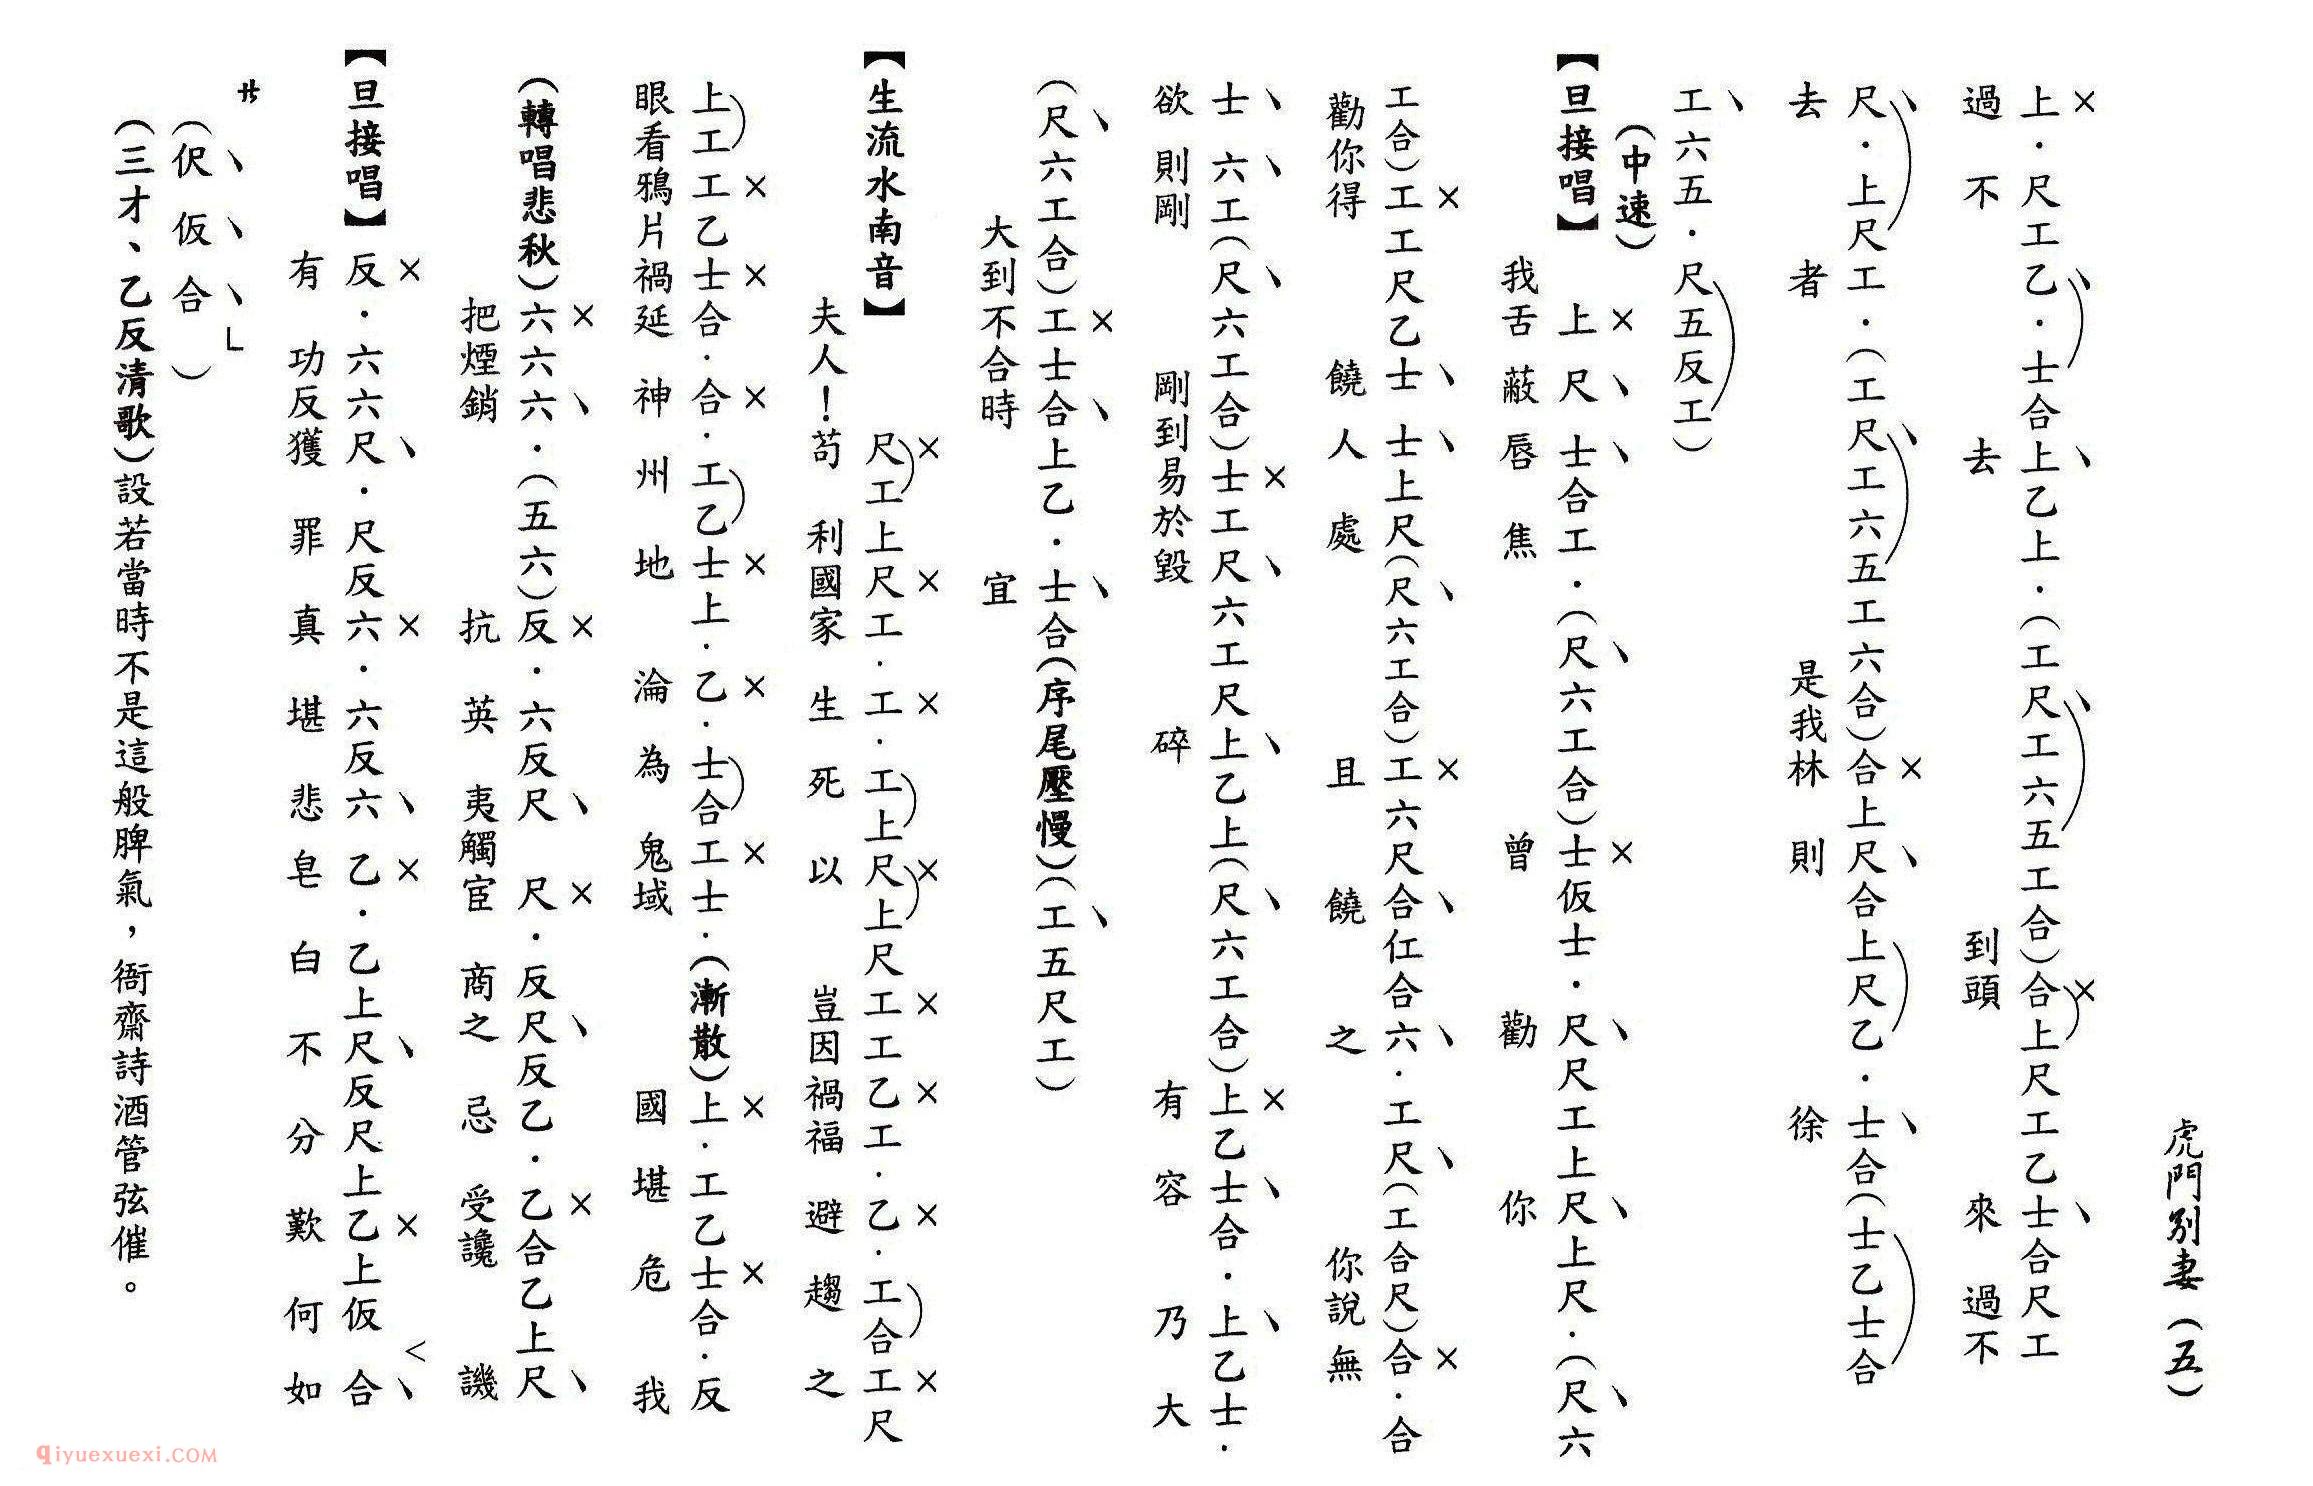 虎門別妻（五）
上．尺工乙．士合上乙上．（工尺工六五工合）合上尺工乙士合尺工
過不去到頭來過不
尺．上尺工．（工尺工六五工六合）合上尺合上尺乙．士合（士乙士合
去者是我林則徐
工六五．尺五反工）
（中速）
【旦接唱】
上尺士合工．（尺六工合）士仮士．尺尺工上尺上尺．（尺六
我舌蔽唇焦曾勸你
工合）工工尺乙士士上尺（尺六工合）工六尺合仜合六．工尺（工合尺）合．合
勸你得饒人處且饒之你說無
士六工（尺六工合）士工尺六工尺上乙上（尺六工合）上乙士合．上乙士．
欲則剛剛到易於毀碎有容乃大
（尺六工合）工士合上乙．士合（序尾壓慢）（工五尺工）
大到不合時宜
【生流水南音】
尺工上尺工．工．工上尺上尺工工乙工．乙．工合工尺
夫人！苟利國家生死以豈因禍福避趨之
上工工乙士合．合．工乙士上．乙．士合工士．（漸散）上．工乙士合．反
眼看鴉片禍延神州地淪為鬼域國堪危我
（轉唱悲秋）六六六．（五六）反．六反尺尺．反尺反乙．乙合乙上尺
把煙銷抗英夷觸宦商之忌受讒譏
【旦接唱】反．六六尺．尺反六．六反六乙．乙上尺反尺上乙上仮合
有功反獲罪真堪悲皂白不分歎何如
サ
（伬仮合）
（三才、乙反清歌）設若當時不是這般脾氣，衙齋詩酒管弦催。
qiyuexuexi.COM